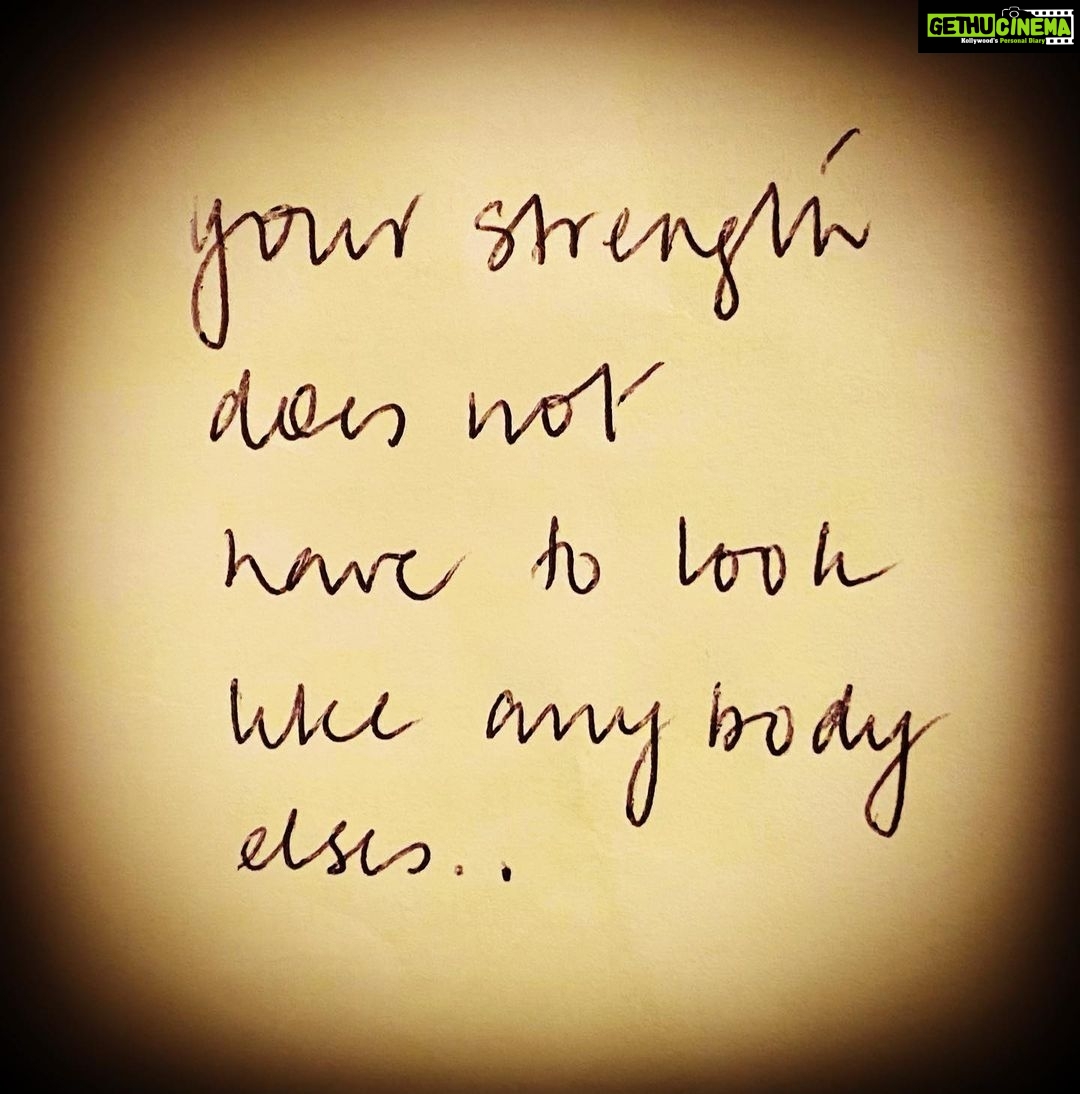 GETHUCINEMA
Kollywood's Personal Diary
your strength
does not
have to look
like any body
elses..